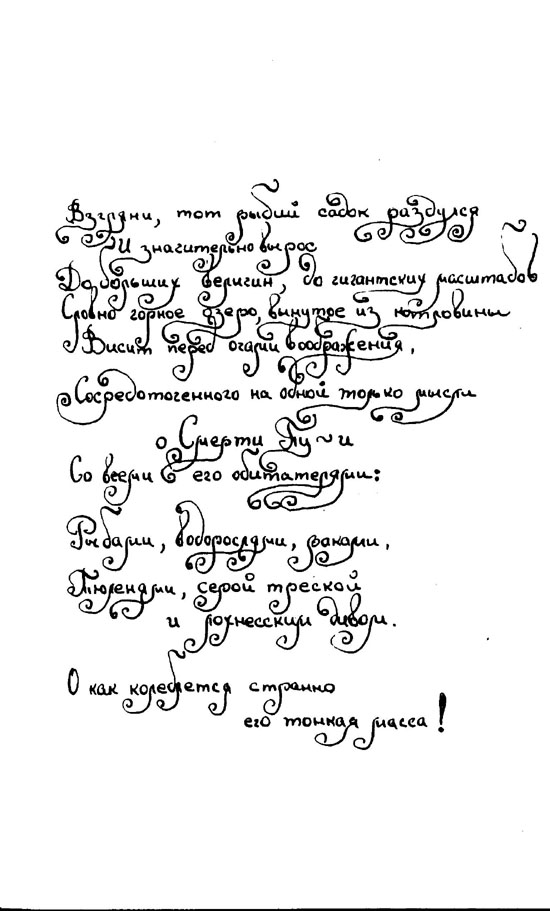 Взгляни, тот рыбий садок раздулся
И значительно вырос
До больших величин, до гигантских масштабов
Словно горное озеро, вынутое из котловины
Висит перед очами воображения,
Сосредоточенного на одной только мысли
о Смерти Лу~и
Со всеми его обитателями:
Рыбами, водорослями, раками,
Тюленями, серой треской
и лохнесским дивом.
О как колеблется странно
его тонкая масса!